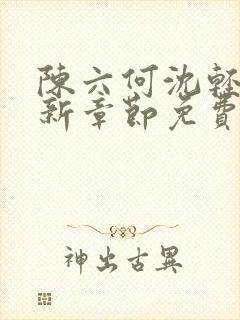 陳六何沈輕
新章節免費
神出古異